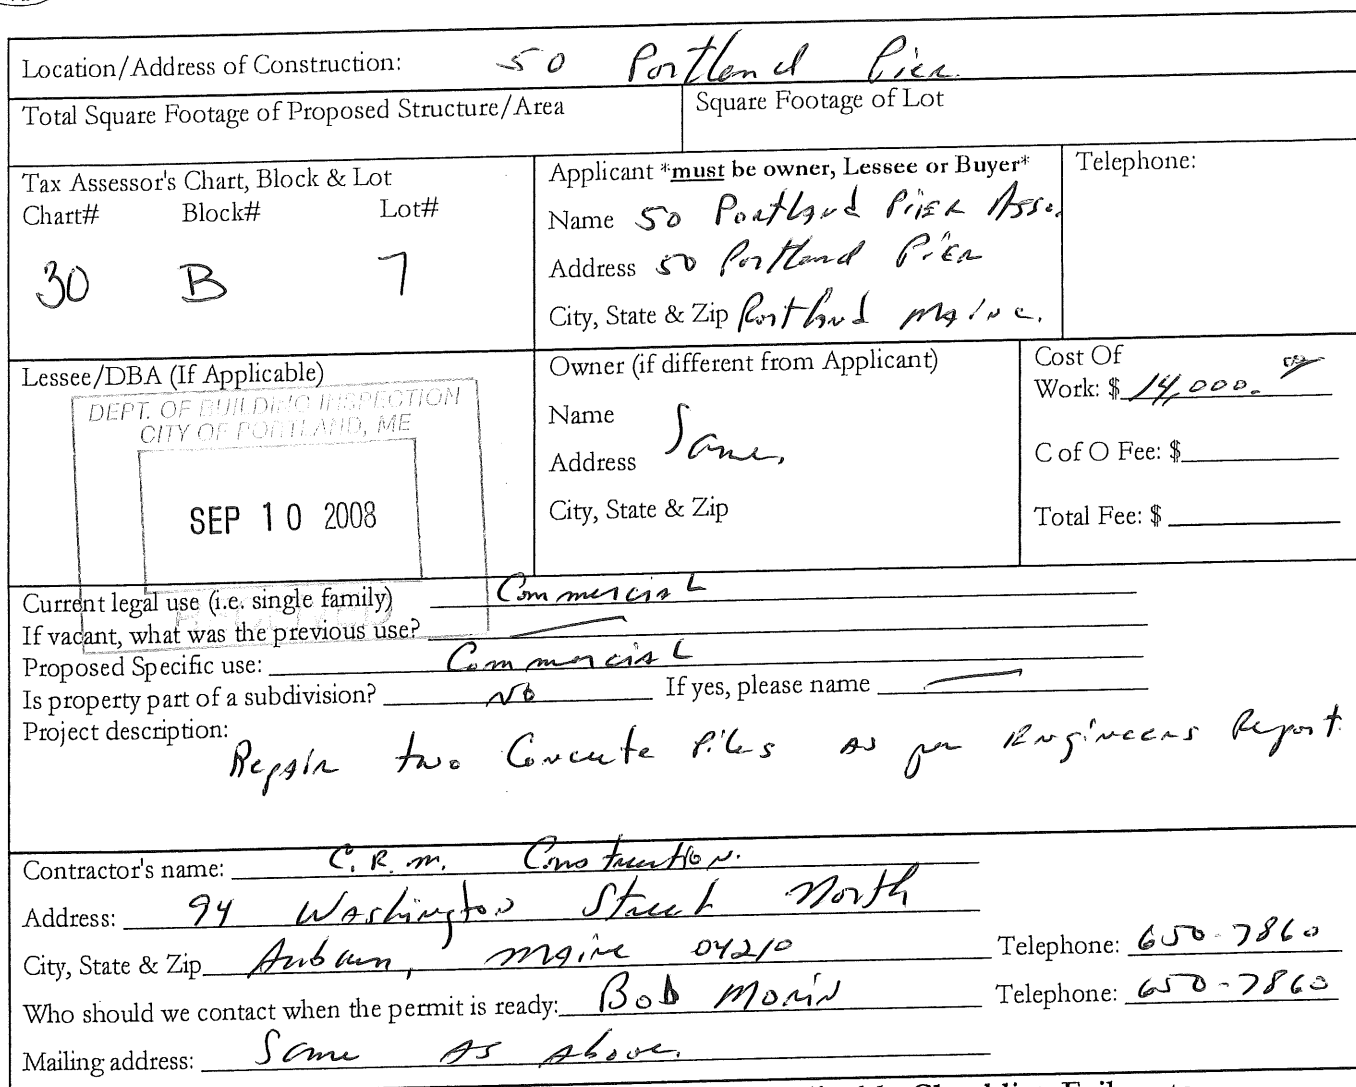 Location/Address of Construction: 50 Portland Pier
Total Square Footage of Proposed Structure/Area
Square Footage of Lot
Tax Assessor's Chart, Block & Lot
Chart# Block# Lot#
30 B 7
Applicant *must be owner, Lessee or Buyer*
Name 50 Portland Pier Asso.
Address 50 Portland Pier
City, State & Zip Portland Maine.
Telephone:
Lessee/DBA (If Applicable)
DEPT. OF BUILDING INSPECTION
CITY OF PORTLAND, ME
SEP 10 2008
Owner (if different from Applicant)
Name
Same.
Address
City, State & Zip
Cost Of
Work: $ 14,000.
C of O Fee: $
Total Fee: $
Current legal use (i.e. single family) Commercial
If vacant, what was the previous use?
Proposed Specific use: Commercial
Is property part of a subdivision? No If yes, please name
Project description:
Repair two Concrete Piles as per Engineers Report
Contractor's name: C.R.M. Construction.
Address: 94 Washington Street North
City, State & Zip Auburn, Maine 04210 Telephone: 650-7860
Who should we contact when the permit is ready: Bob Morin Telephone: 650-7860
Mailing address: Same as above.